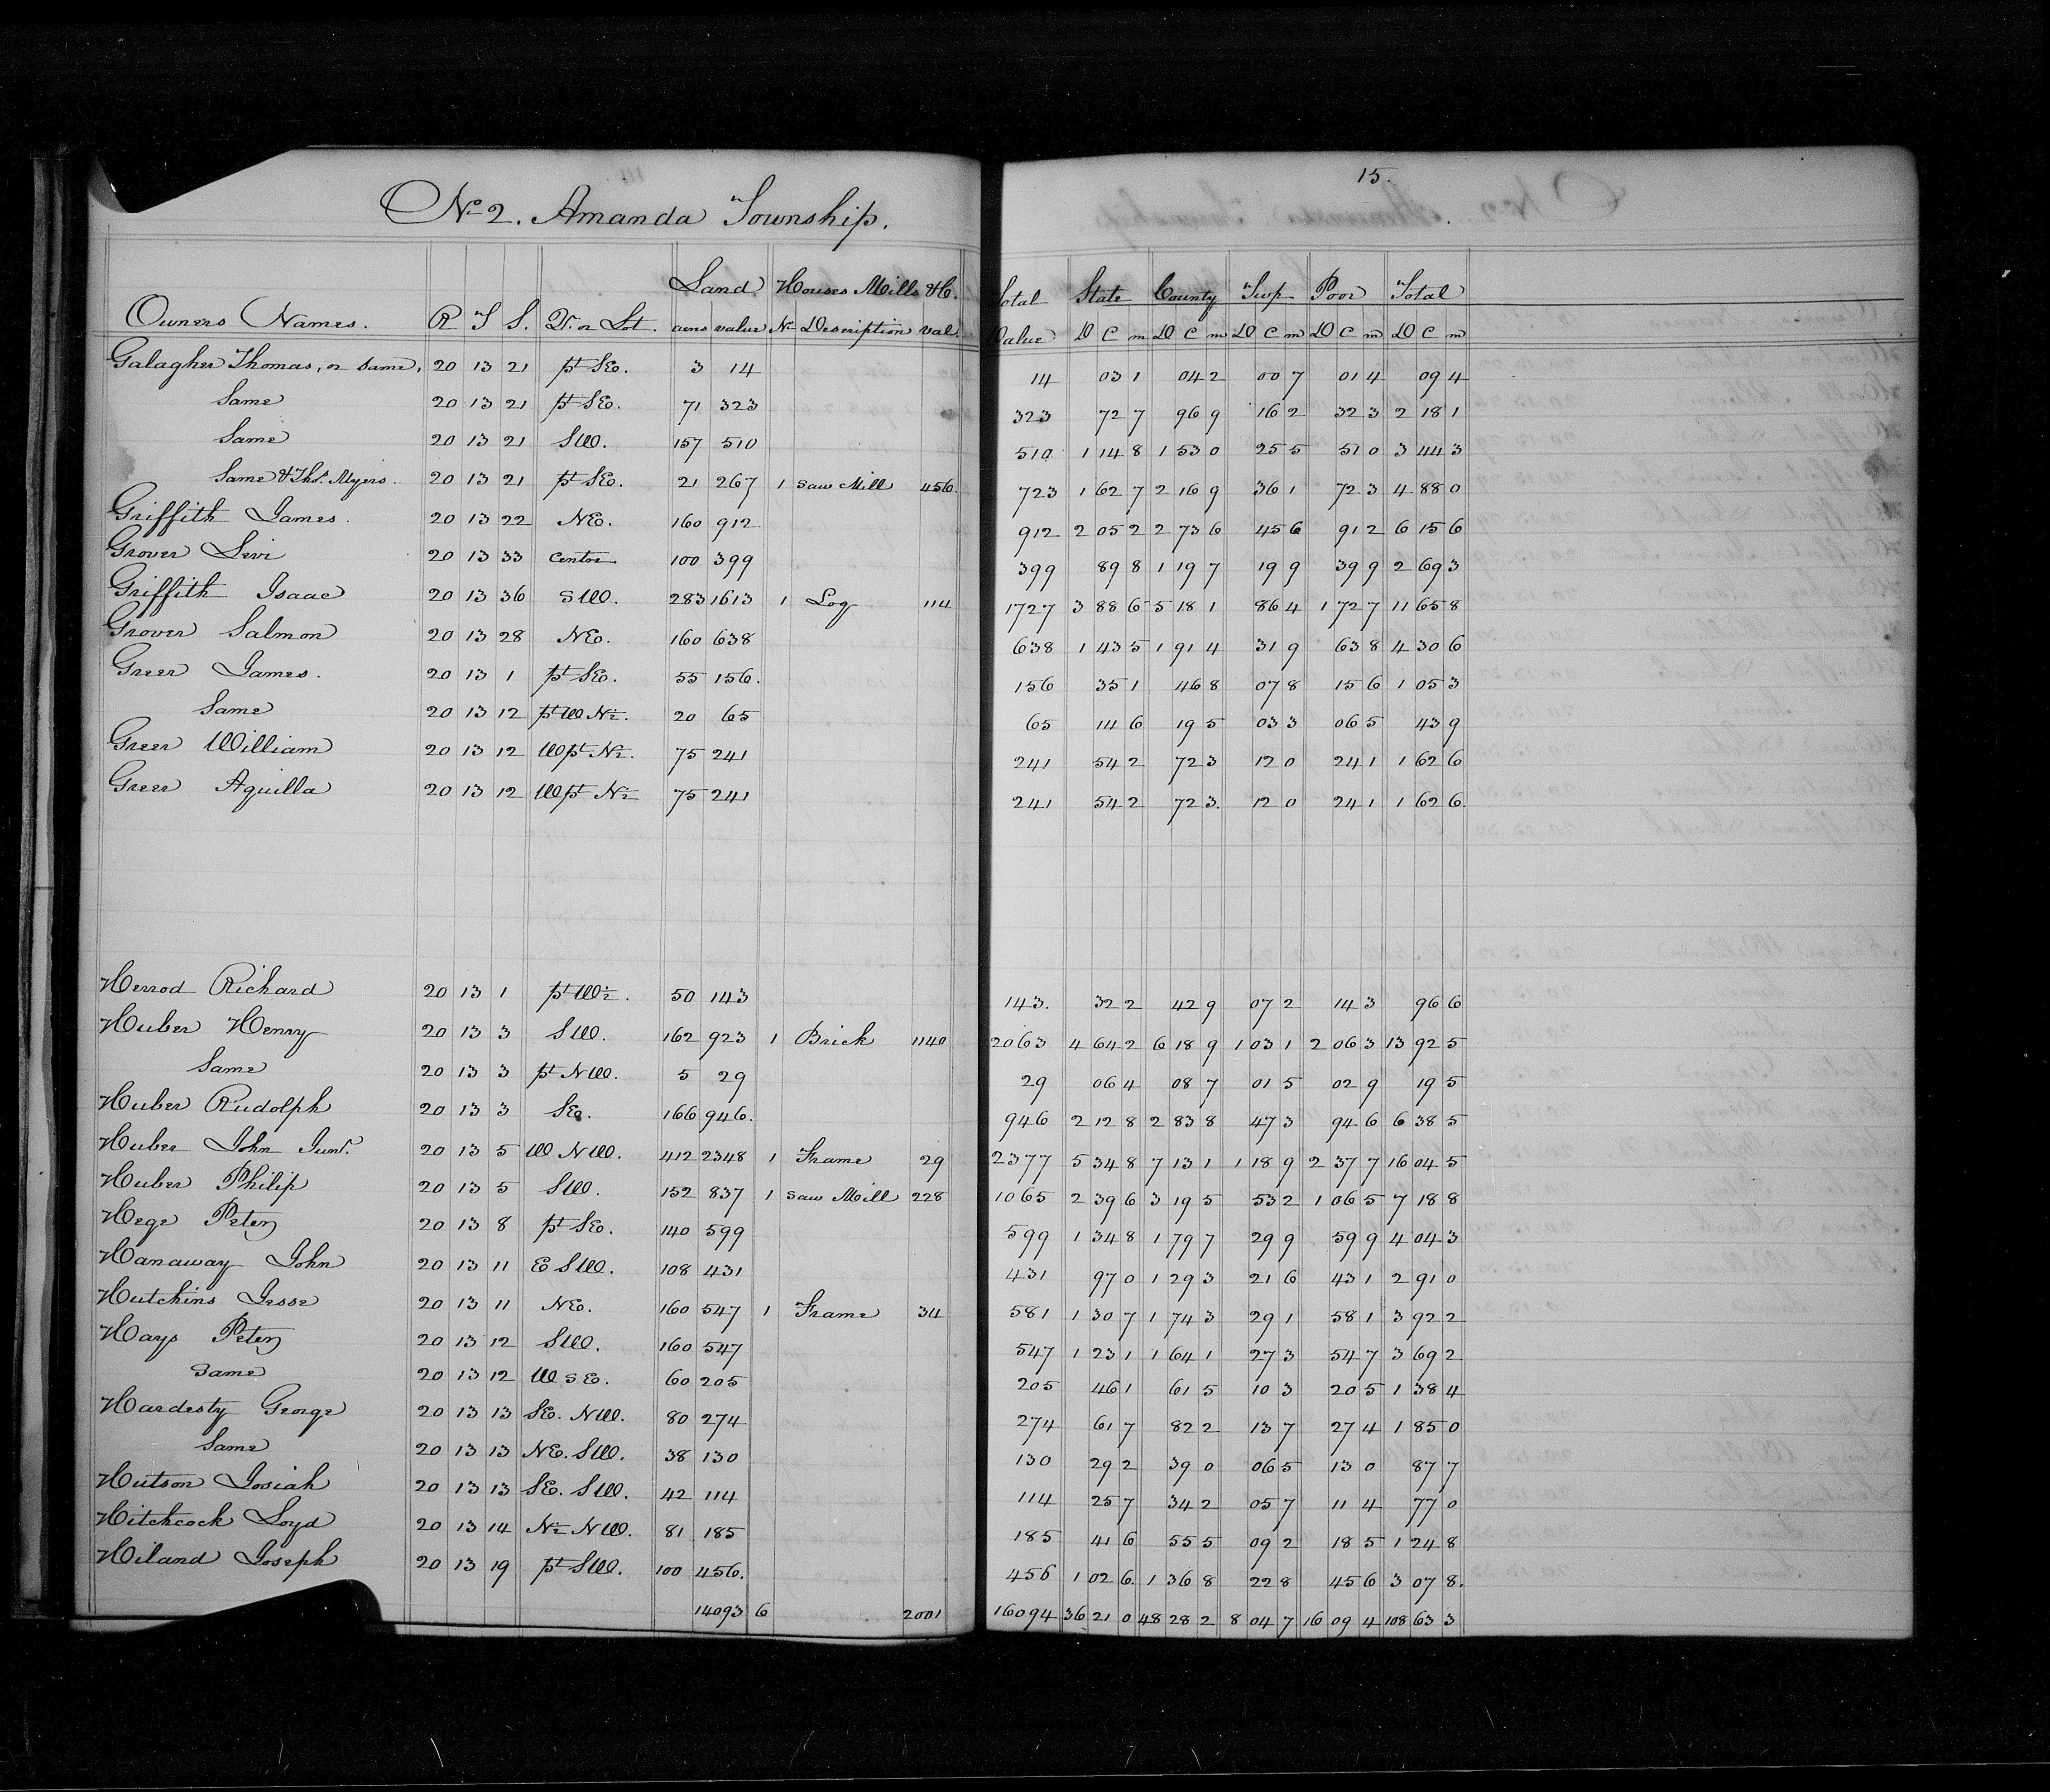 No 2. Amanda Township.
15.
Land Houses Mills &C. Total State County Twp Poor Total
Owners Names. R T S. Qr. or Lot. acres value No Description val. Value D C m D C m D C m D C m D C m
Galagher Thomas, or same, 20 13 21 pt SE. 3 14 14 03 1 04 2 00 7 01 4 09 4
Same 20 13 21 pt SE. 71 323 323 72 7 96 9 16 2 32 3 2 18 1
Same 20 13 21 SW. 157 510 510 1 14 8 1 53 0 25 5 51 0 3 44 3
Same & Thos. Myers. 20 13 21 pt SE. 21 267 1 Saw Mill 456. 723 1 62 7 2 16 9 36 1 72 3 4 88 0
Griffith James. 20 13 22 NE. 160 912 912 2 05 2 2 73 6 45 6 91 2 6 15 6
Grover Levi 20 13 33 centre 100 399 399 89 8 1 19 7 19 9 39 9 2 69 3
Griffith Isaac 20 13 36 SW. 283 1613 1 Log 114 1727 3 88 6 5 18 1 86 4 1 72 7 11 65 8
Grover Salmon 20 13 28 NE. 160 638 638 1 43 5 1 91 4 31 9 63 8 4 30 6
Greer James. 20 13 1 pt SE. 55 156. 156 35 1 46 8 07 8 15 6 1 05 3
Same 20 13 12 pt W N½. 20 65 65 14 6 19 5 03 3 06 5 43 9
Greer William 20 13 12 W pt N½. 75 241 241 54 2 72 3 12 0 24 1 1 62 6
Greer Aquilla 20 13 12 W pt N½ 75 241 241 54 2 72 3. 12 0 24 1 1 62 6.
Herrod Richard 20 13 1 pt W½. 50 143 143. 32 2 42 9 07 2 14 3 96 6
Huber Henry 20 13 3 SW. 162 923 1 Brick 1140 2063 4 64 2 6 18 9 1 03 1 2 06 3 13 92 5
Same 20 13 3 pt NW. 5 29 29 06 4 08 7 01 5 02 9 19 5
Huber Rudolph 20 13 3 SE. 166 946. 946 2 12 8 2 83 8 47 3 94 6 6 38 5
Huber John Junr. 20 13 5 W NW. 412 2348 1 Frame 29 2377 5 34 8 7 13 1 1 18 9 2 37 7 16 04 5
Huber Philip 20 13 5 SW. 152 837 1 Saw Mill 228 1065 2 39 6 3 19 5 53 2 1 06 5 7 18 8
Hege Peter 20 13 8 pt SE. 140 599 599 1 34 8 1 79 7 29 9 59 9 4 04 3
Hanaway John 20 13 11 E SW. 108 431 431 97 0 1 29 3 21 6 43 1 2 91 0
Hutchins Jesse 20 13 11 NE. 160 547 1 Frame 34 581 1 30 7 1 74 3 29 1 58 1 3 92 2
Hays Peter 20 13 12 SW. 160 547 547 1 23 1 1 64 1 27 3 54 7 3 69 2
Same 20 13 12 W SE. 60 205 205 46 1 61 5 10 3 20 5 1 38 4
Hardesty George 20 13 13 SE. NW. 80 274 274 61 7 82 2 13 7 27 4 1 85 0
Same 20 13 13 NE. SW. 38 130 130 29 2 39 0 06 5 13 0 87 7
Hutson Josiah 20 13 13 SE. SW. 42 114 114 25 7 34 2 05 7 11 4 77 0
Hitchcock Loyd 20 13 14 N½ NW. 81 185 185 41 6 55 5 09 2 18 5 1 24 8
Hiland Joseph 20 13 19 pt SW. 100 456. 456 1 02 6. 1 36 8 22 8 45 6 3 07 8.
14093 6 2001 16094 36 21 0 48 28 2 8 04 7 16 09 4 108 63 3